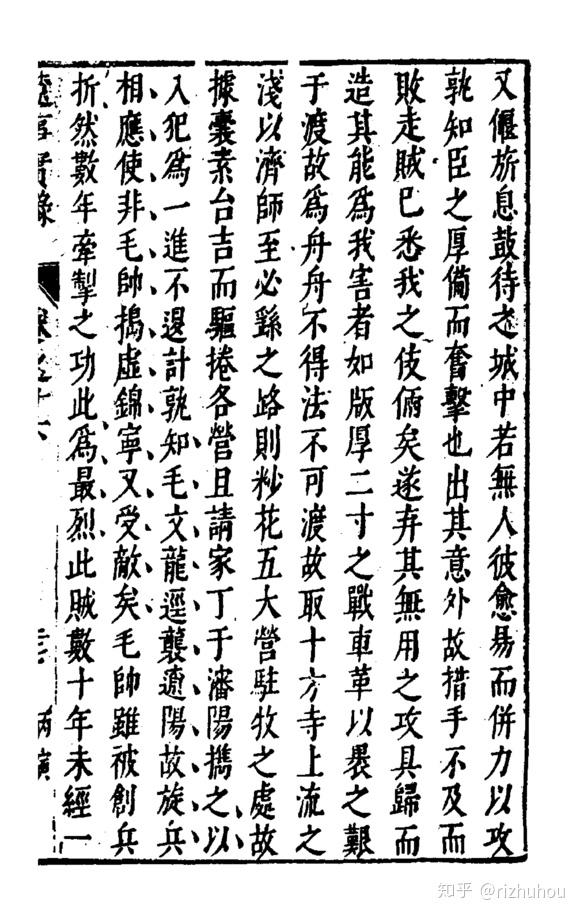 又偃旂息鼓待之城中若無人彼愈易而併力以攻
孰知臣之厚備而奮擊也出其意外故措手不及而
敗走賊已悉我之伎倆矣遂弃其無用之攻具歸而
造其能為我害者如版厚二寸之戰車革以褁之艱
于渡故為舟舟不得法不可渡故取十方寺上流之
淺以濟師至必繇之路則粆花五大營駐牧之處故
據囊素台吉而驅捲各營且請家丁于瀋陽㩦之以
入犯為一進不退計孰知毛文龍逕襲遼陽故旋兵
相應使非毛帥搗虛錦寧又受敵矣毛帥雖被創兵
折然數年牽掣之功此為最烈此賊數十年未經一
實錄
知乎 @rizhuhou